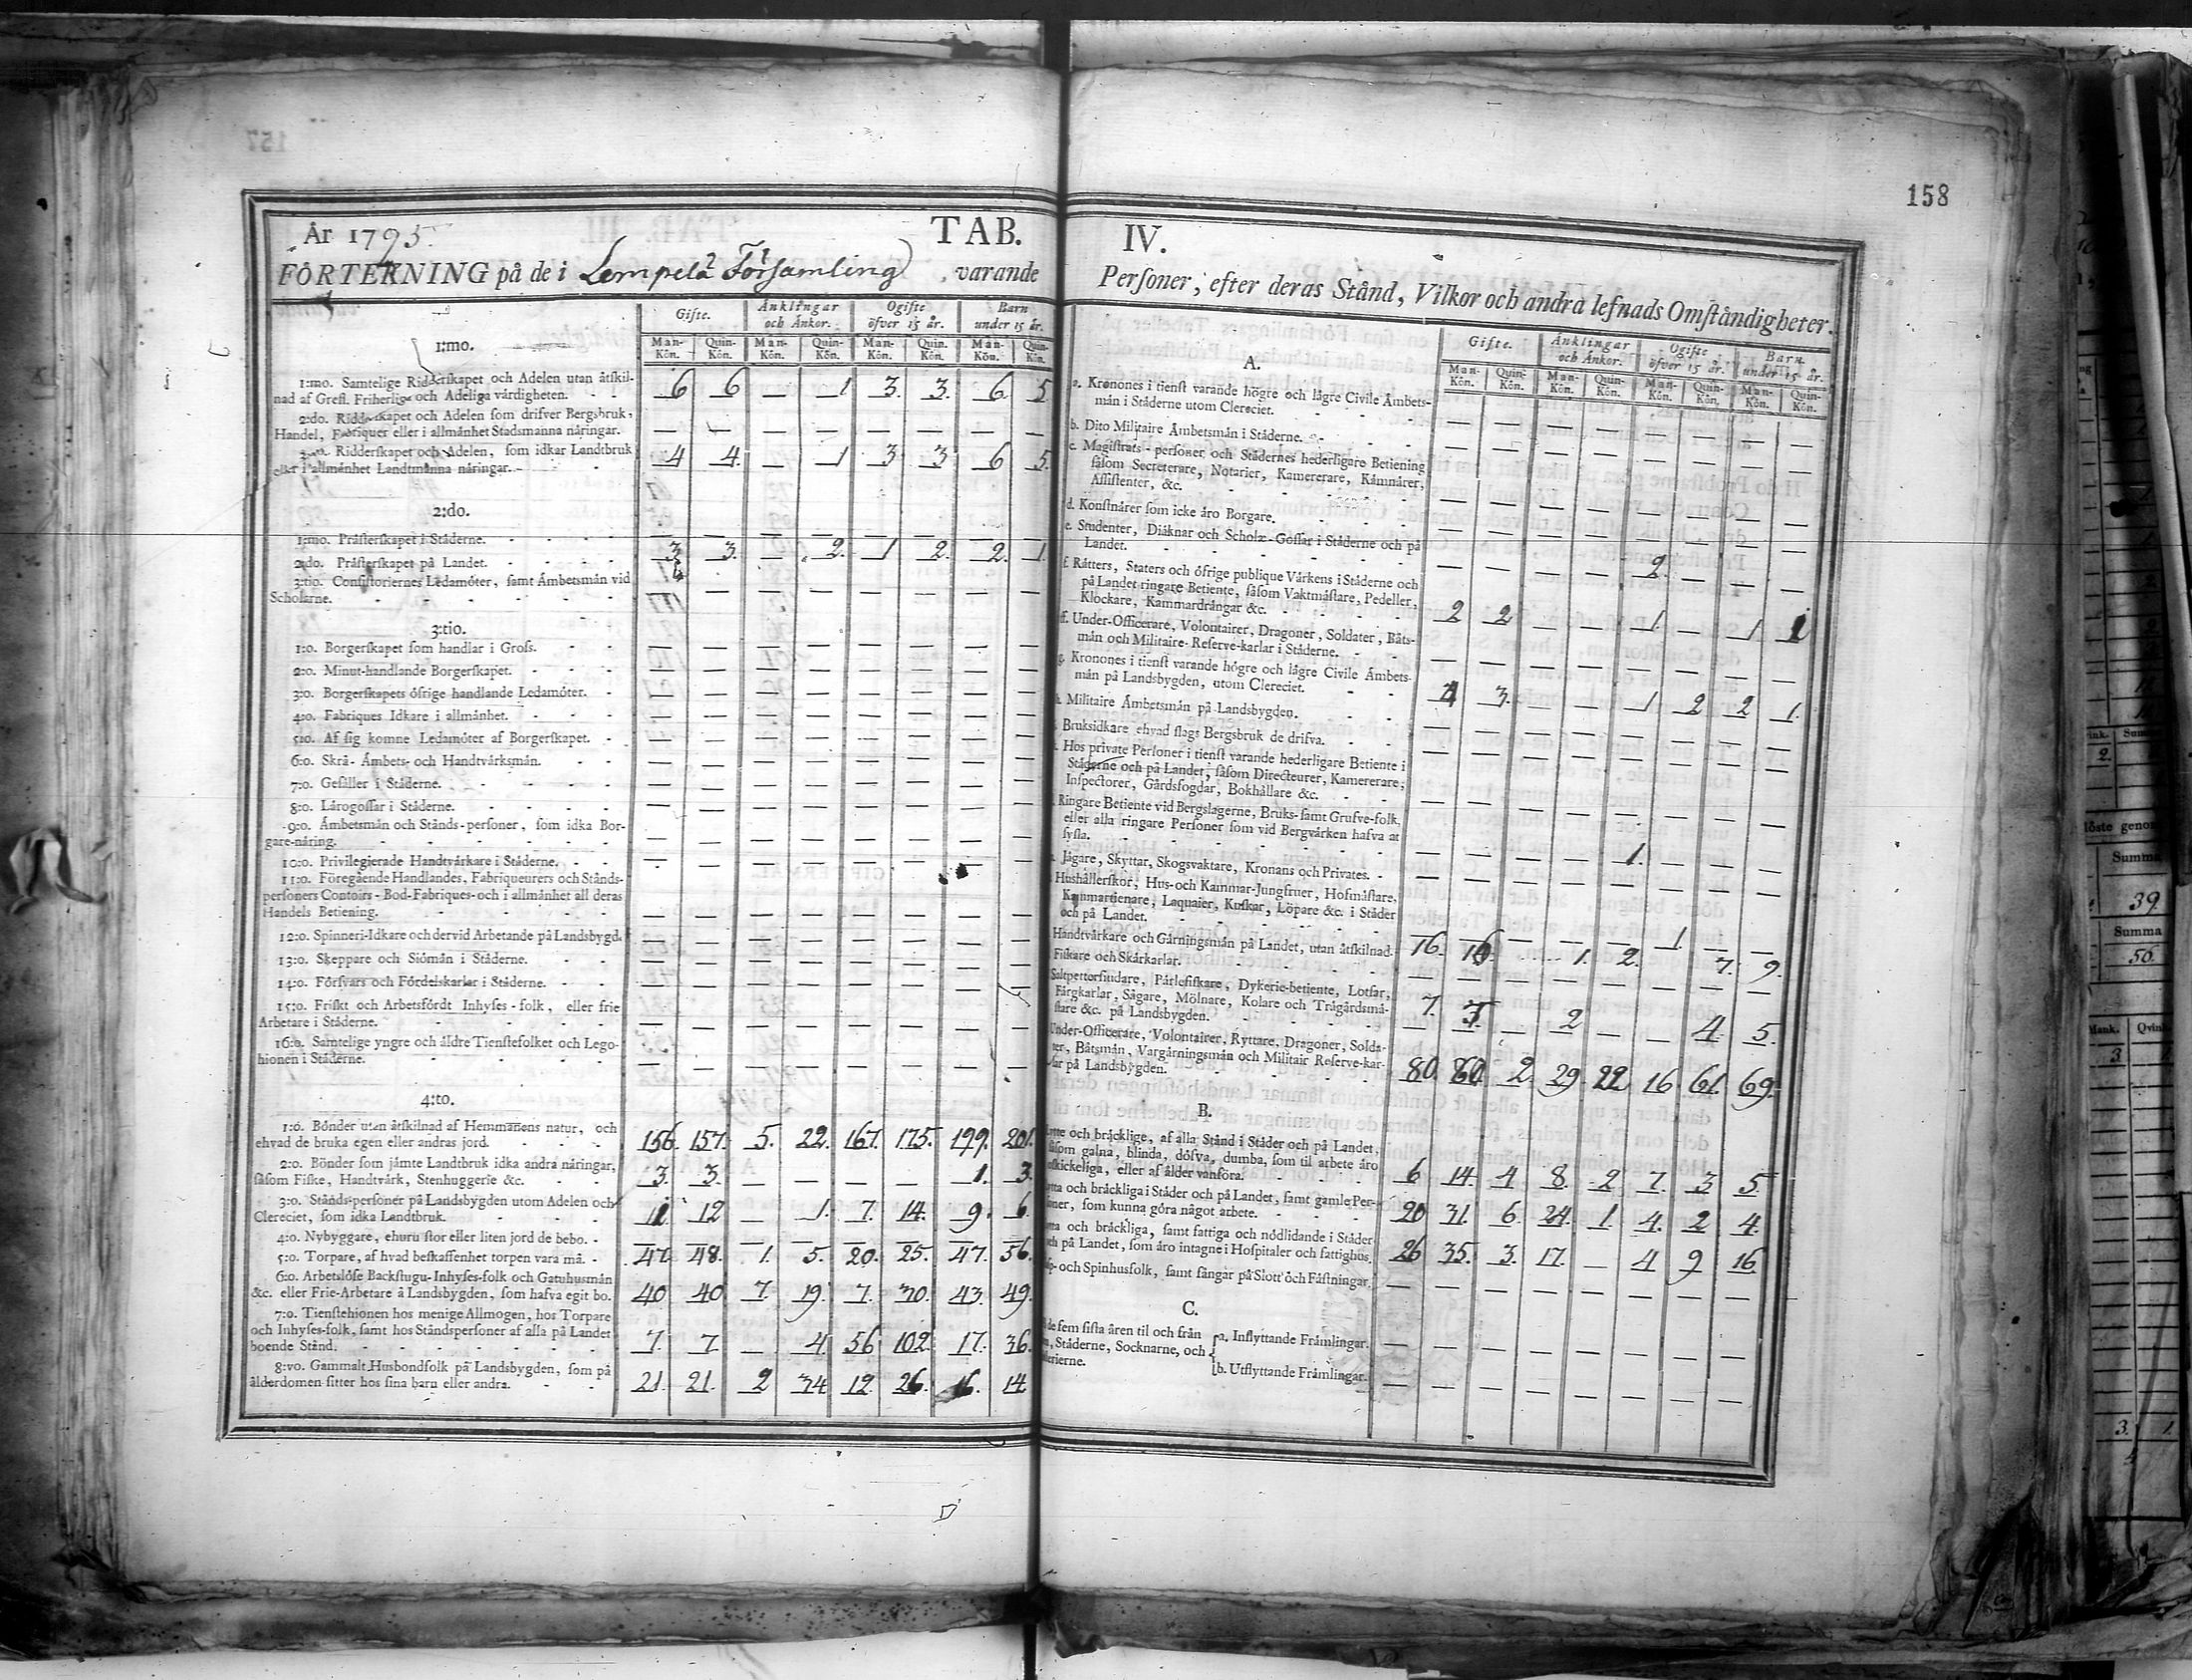 158
År 1795. TAB. IV.
FÖRTEKNING på de i Lempelä Församling varande Personer, efter deras Stånd, Vilkor och andra lefnads Omständigheter.
Gifte. Änklingar och Änkor. Ogifte öfver 15 år. Barn under 15 år.
Man-Kön. Quin-Kön. Man-Kön. Quin-Kön. Man-Kön. Quin-Kön. Man-Kön. Quin-Kön.
1:mo.
1:mo. Samtelige Ridderskapet och Adelen utan åtskil-
nad af Grefl. Friherlige och Adeliga värdigheten. - - 6 6 — 1 3. 3. 6. 5
2:do. Ridderskapet och Adelen som drifver Bergsbruk,
Handel, Fabriquer eller i allmänhet Stadsmanna näringar. — — — — — — — —
Ridderskapet och Adelen, som idkar Landtbruk
eller i allmänhet Landtmanna näringar. - 4 4. — 1 3 3 6 5.
2:do.
1:mo. Prästerskapet i Städerne. - - - - -
2:do. Prästerskapet på Landet. - - - - - 3 3. — 2. 1 2. 2. 1.
3:tio. Consistoriernes Ledamöter, samt Ämbetsmän vid
Scholarne. - - - - - - — — — — — — — —
3:tio.
1:o. Borgerskapet som handlar i Gross. - - — — — — — — — —
2:o. Minut-handlande Borgerskapet. - - — — — — — — — —
3:o. Borgerskapets öfrige handlande Ledamöter. - — — — — — — — —
4:o. Fabriques Idkare i allmänhet. - - - — — — — — — — —
5:o. Af sig komne Ledamöter af Borgerskapet. - — — — — — — — —
6:o. Skrå- Ämbets- och Handtvärksmän. - - — — — — — — — —
7:o. Gesäller i Städerne. - - - - — — — — — — — —
8:o. Lärogossar i Städerne. - - - - — — — — — — — —
9:o. Ämbetsmän och Stånds-personer, som idka Bor-
gare-näring. - - - - - - — — — — — — — —
10:o. Privilegierade Handtvärkare i Städerne. - - — — — — — —
11:o. Föregående Handlandes, Fabriqueurers och Stånds-
personers Contoirs - Bod-Fabriques- och i allmänhet all deras
Handels Betiening. - - - - - — — — — — — — —
12:o. Spinneri-Idkare och dervid Arbetande på Landsbygd. — — — — — — — —
13:o. Skeppare och Siömän i Städerne. - - — — — — — — — —
14:o. Försvars och Fördelskarlar i Städerne. - - — — — — — — —
15:o. Friskt och Arbetsfördt Inhyses - folk, eller frie
Arbetare i Städerne. - - - - - — — — — — — — —
16:o. Samtelige yngre och äldre Tienstefolket och Lego-
hionen i Städerne. - - - - - — — — — — — — —
4:to.
1:o. Bönder utan åtskilnad af Hemmanens natur, och
ehvad de bruka egen eller andras jord. - - - 156. 157. 5. 22. 167. 175. 199. 201.
2:o. Bönder som jämte Landtbruk idka andra näringar,
såsom Fiske, Handtvärk, Stenhuggerie &c. - - 3. 3. — — — — 1. 3.
3:o. Stånds-personer på Landsbygden utom Adelen och
Clereciet, som idka Landtbruk. - - - - 11 12 — 1. 7. 14. 9. 6.
4:o. Nybyggare, ehuru stor eller liten jord de bebo. - — — — — — — — —
5:o. Torpare, af hvad beskaffenhet torpen vara må. - 47. 48. 1. 5. 20. 25. 47. 56.
6:o. Arbetslöse Backstugu-Inhyses-folk och Gatuhusmän
&c. eller Frie-Arbetare å Landsbygden, som hafva egit bo. 40 40 7. 19. 7. 30. 43. 49.
7:o. Tienstehionen hos menige Allmogen, hos Torpare
och Inhyses-folk, samt hos Ståndspersoner af alla på Landet
boende Stånd. - - - - - - 7. 7 — 4. 56 102. 17. 36.
8:vo. Gammalt Husbondfolk på Landsbygden, som på
ålderdomen sitter hos sina barn eller andra. - - 21. 21. 2 34 12. 26. 16. 14
Gifte. Änklingar och Änkor. Ogifte öfver 15 år. Barn under 15 år.
Man-Kön. Quin-Kön. Man-Kön. Quin-Kön. Man-Kön. Quin-Kön. Man-Kön. Quin-Kön.
A.
a. Kronones i tienst varande högre och lägre Civile Ämbets-
män i Städerne utom Clereciet. - - - — — — — — — — —
b. Dito Militaire Ämbetsmän i Städerne. - - - — — — — — — — —
c. Magistrats - personer och Städernes hederligare Betiening
såsom Secreterare, Notarier, Kamererare, Kämnärer,
Assistenter, &c. - - - - - — — — — — — — —
d. Konstnärer som icke äro Borgare. - - - — — — — — — — —
e. Studenter, Diäknar och Scholæ-Gossar i Städerne och på
Landet. - - - - - — — — — 2. — — —
f. Rätters, Staters och öfrige publique Värkens i Städerne och
på Landet ringare Betiente, såsom Vaktmästare, Pedeller,
Klockare, Kammardrängar &c. - - - 2 2. — — 1. — 1 1
ff. Under-Officerare, Volontairer, Dragoner, Soldater, Båts-
män och Militaire-Reserve-karlar i Städerne. - — — — — — — — —
g. Kronones i tienst varande högre och lägre Civile Ämbets-
män på Landsbygden, utom Clereciet. - - 4 3. — — 1 2 2 1.
Militaire Ämbetsmän på Landsbygden. - - — — — — — — — —
Bruksidkare ehvad slags Bergsbruk de drifva. - - — — — — — — — —
Hos private Personer i tienst varande hederligare Betiente i
Städerne och på Landet, såsom Directeurer, Kamererare,
Inspectorer, Gårdsfogdar, Bokhållare &c. - - — — — — — — — —
Ringare Betiente vid Bergslagerne, Bruks-samt Grufve-folk,
eller alla ringare Personer som vid Bergvärken hafva at
syssla. - - - - - - — — — — 1. — — —
Jägare, Skyttar, Skogsvaktare, Kronans och Privates. - — — — — — — — —
Hushållerskor, Hus-och Kammar-Jungfruer, Hofmästare,
Kammartienare, Laquaier, Kuskar, Löpare &c. i Städer
och på Landet. - - - - - — — — — — 1 — —
Handtvärkare och Gärningsmän på Landet, utan åtskilnad. 16. 16. — 1. 2. — 7. 9.
Fiskare och Skärkarlar. - - - - — — — — — — — —
Saltpettersiudare, Pärlefiskare, Dykerie-betiente, Lotsar,
Färgkarlar, Sågare, Mölnare, Kolare och Trägårdsmä-
stare &c. på Landsbygden. - - - - 7. 7. — 2 — — 4. 5.
Under-Officerare, Volontairer, Ryttare, Dragoner, Solda-
ter, Båtsmän, Vargärningsmän och Militair Reserve-kar-
lar på Landsbygden. - - - - 80. 80. 2. 29. 22. 16 61. 69.
B.
och bräcklige, af alla Stånd i Städer och på Landet,
såsom galna, blinda, döfva, dumba, som til arbete äro
oskickeliga, eller af ålder vanföra. - - - 6 14. 4 8. 2 7. 3 5.
och bräckliga i Städer och på Landet, samt gamle Per-
soner, som kunna göra något arbete. - - - 20 31. 6. 24. 1 4. 2 4.
och bräckliga, samt fattiga och nödlidande i Städer
och på Landet, som äro intagne i Hospitaler och fattighus. 26 35. 3. 17. — 4 9 16.
och Spinhusfolk, samt fångar på Slott och Fästningar. — — — — — — — —
C.
de fem sista åren til och från
Städerne, Socknarne, och
a. Inflyttande Främlingar. — — — — — — — —
b. Utflyttande Främlingar. — — — — — — — —
Summa
39.
Summa
50.
Mank. Qvink.
3
3. 1.